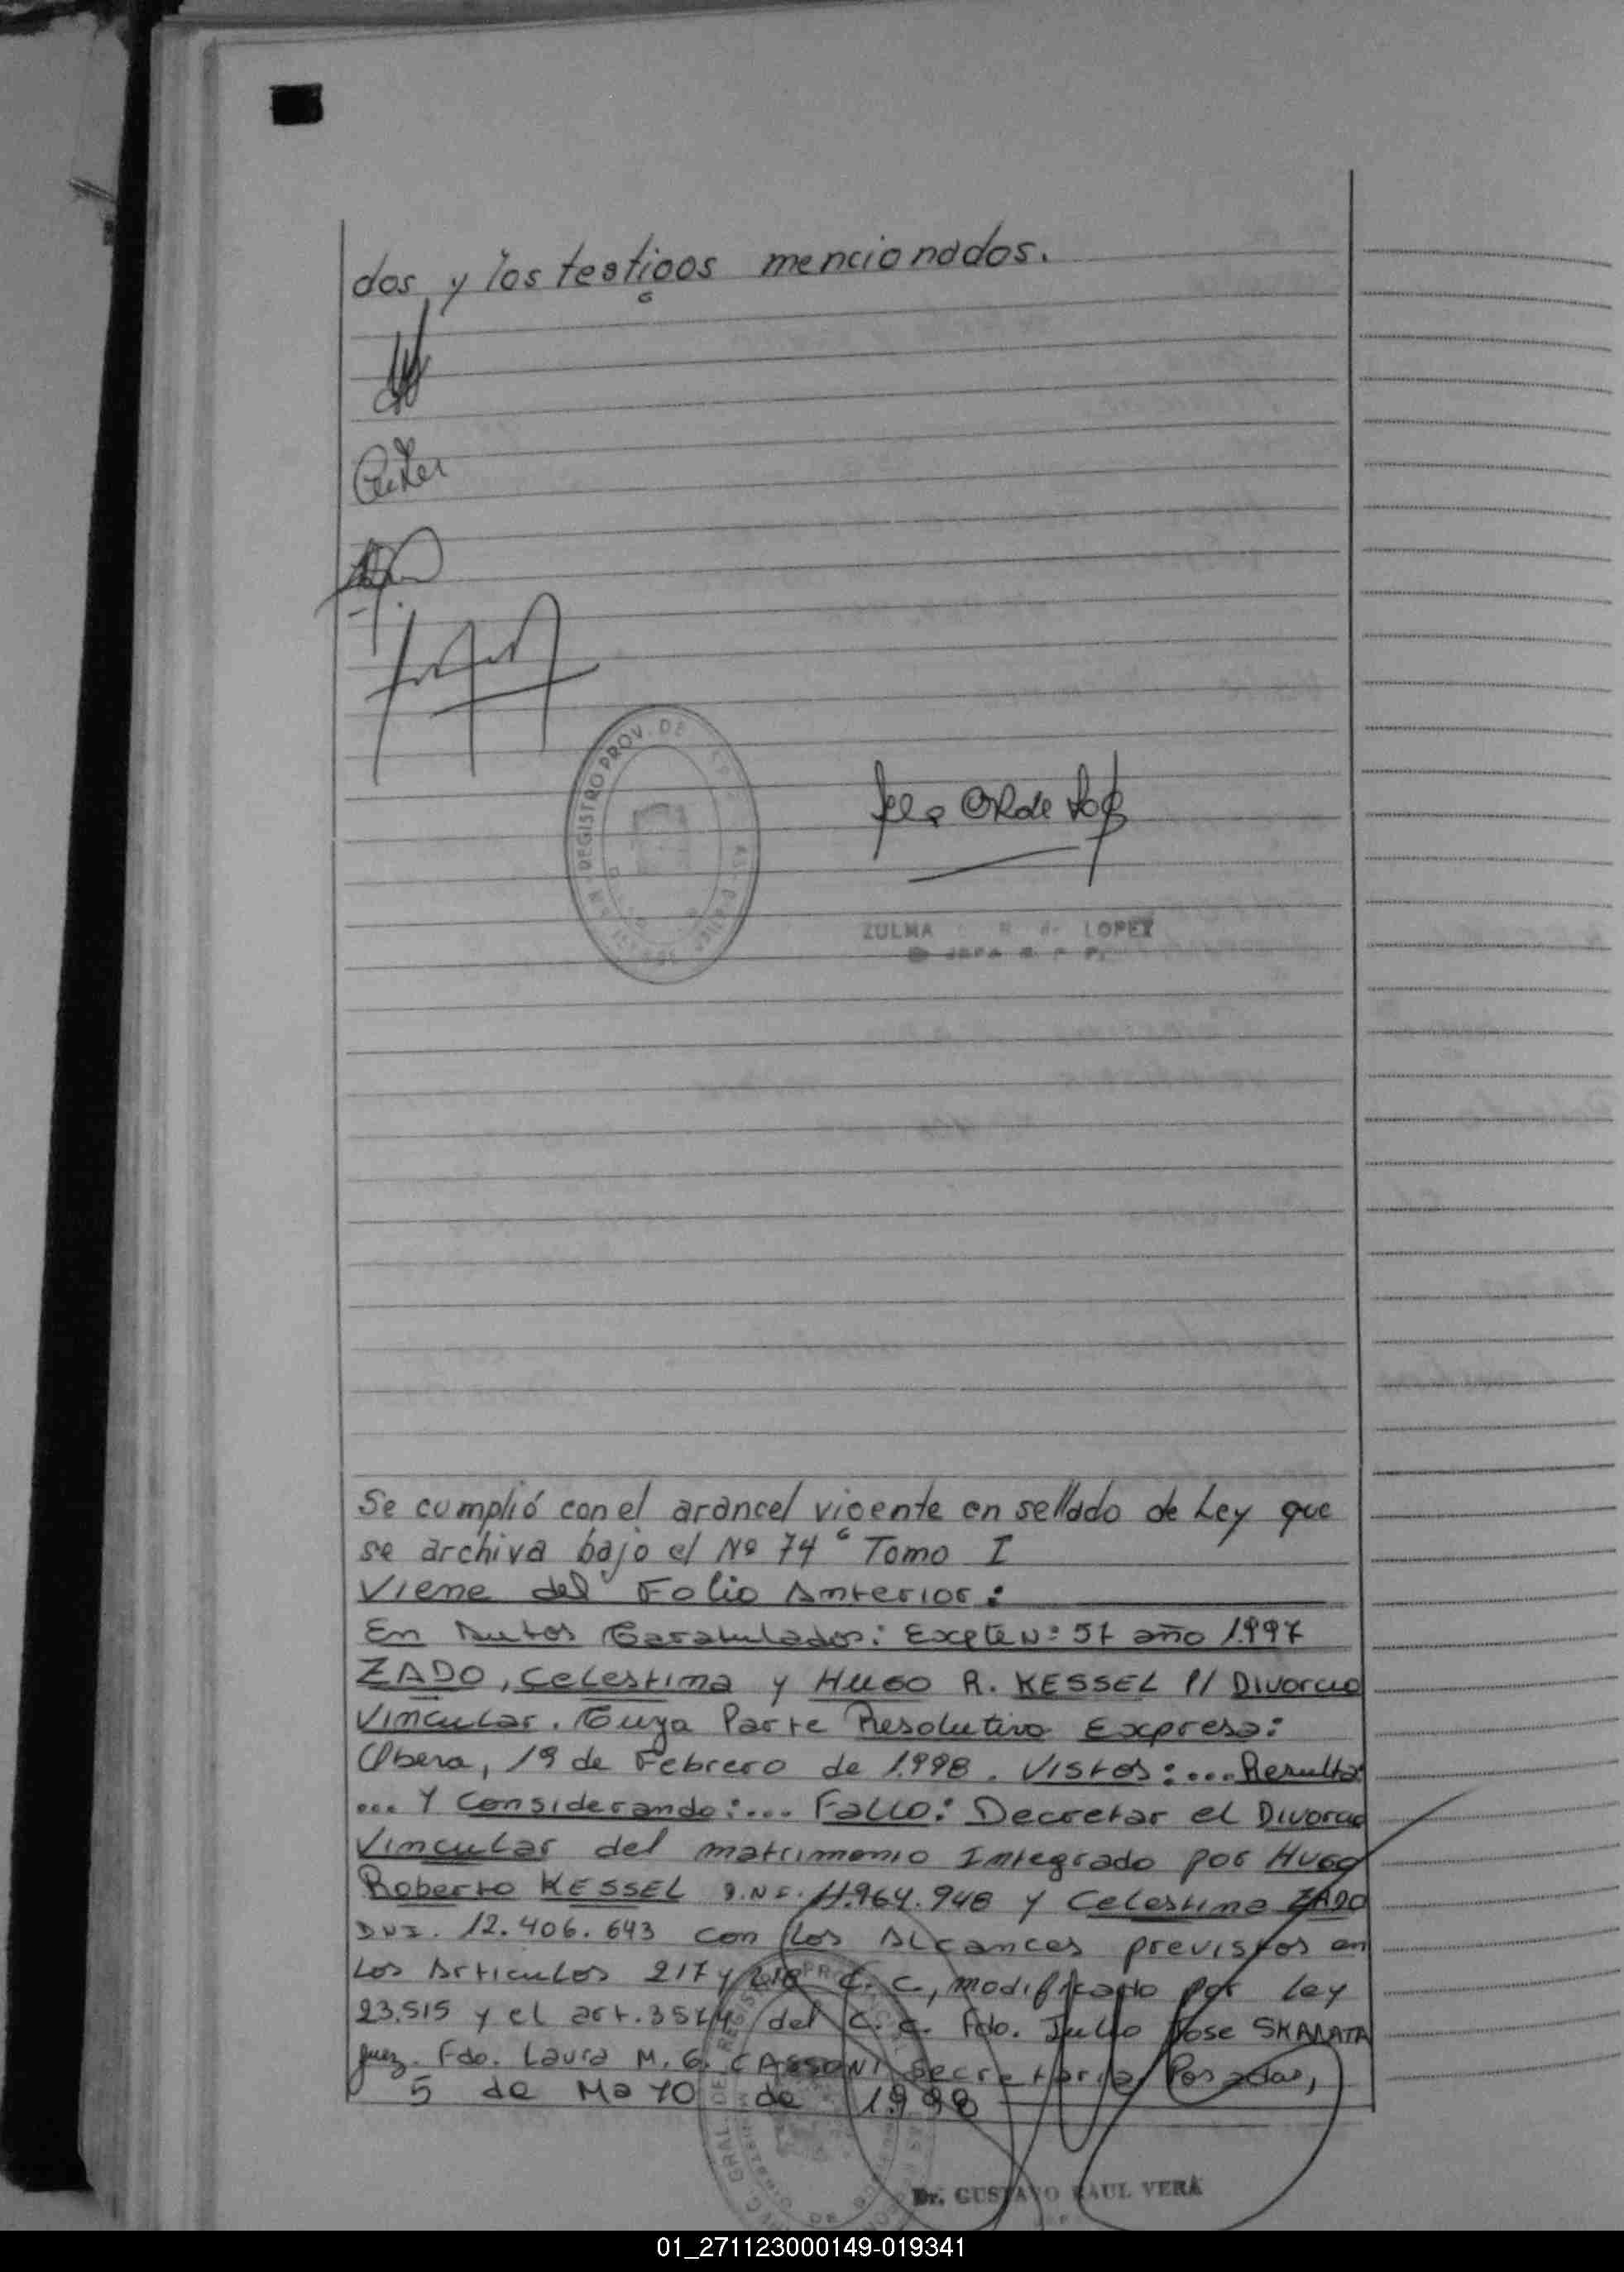 dos, y los testigos mencionados.
REGISTRO PROV. DE
ZULMA R de LOPEZ
Se cumplió con el arancel vigente en sellado de Ley que
se archiva bajo el Nº 74 Tomo I
Viene del Folio Anterior:
En Autos Caratulados: Expte Nº 57 año 1.997
ZADO, Celestina y HUGO R. KESSEL P/ Divorcio
Vincular. Cuya Parte Resolutiva Expresa:
Obera, 19 de Febrero de 1.998. Vistos:... Resulta
... Y Considerando:... Fallo: Decretar el Divorcio
Vincular del matrimonio Integrado por Hugo
Roberto KESSEL D.N.I. 11.964.948 y Celestina ZADO
DNI. 12.406.643 con los Alcances previstos en
Los Articulos 217 y 218 C.C., modificado por Ley
23.515 y el art. 3574 del C.C. Fdo. Julio Jose SKALATA
Juez. Fdo. Laura M. G. CASSONI Secretaria. Posadas,
5 de Mayo de 1.998
Dr. GUSTAVO RAUL VERA
01_271123000149-019341